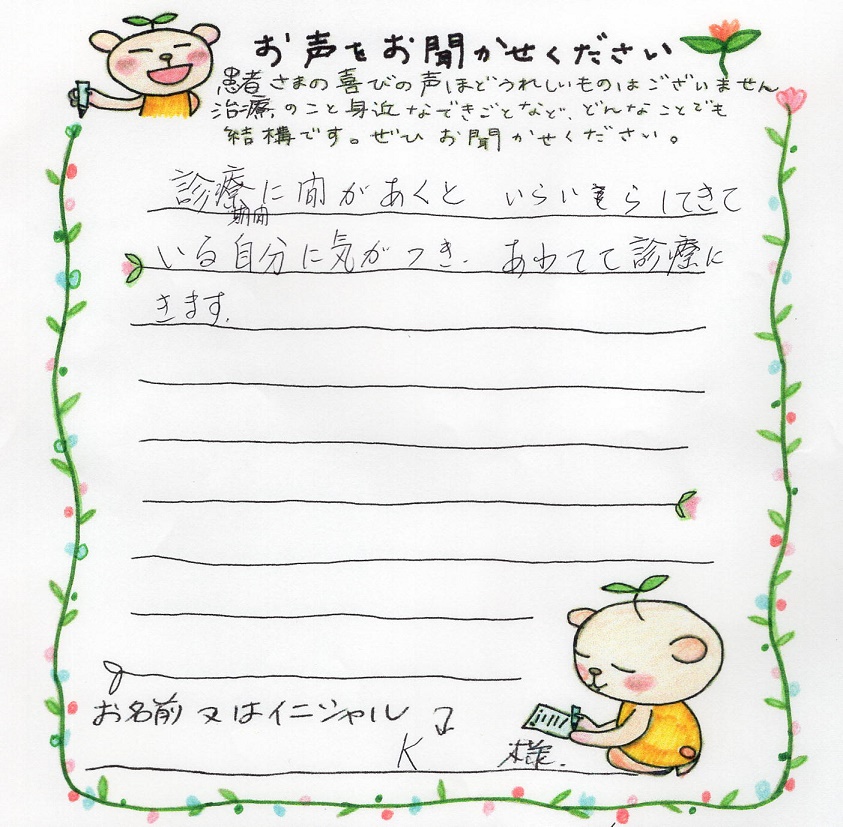 お声をお聞かせください
患者さまの喜びの声ほどうれしいものはございません
治療のこと身近なできごとなど、どんなことでも
結構です。ぜひお聞かせください。
診療に間があくと いらいらしてきて
期間
いる自分に気がつき、あわてて診療に
きます。
お名前又はイニシャル
K 様.